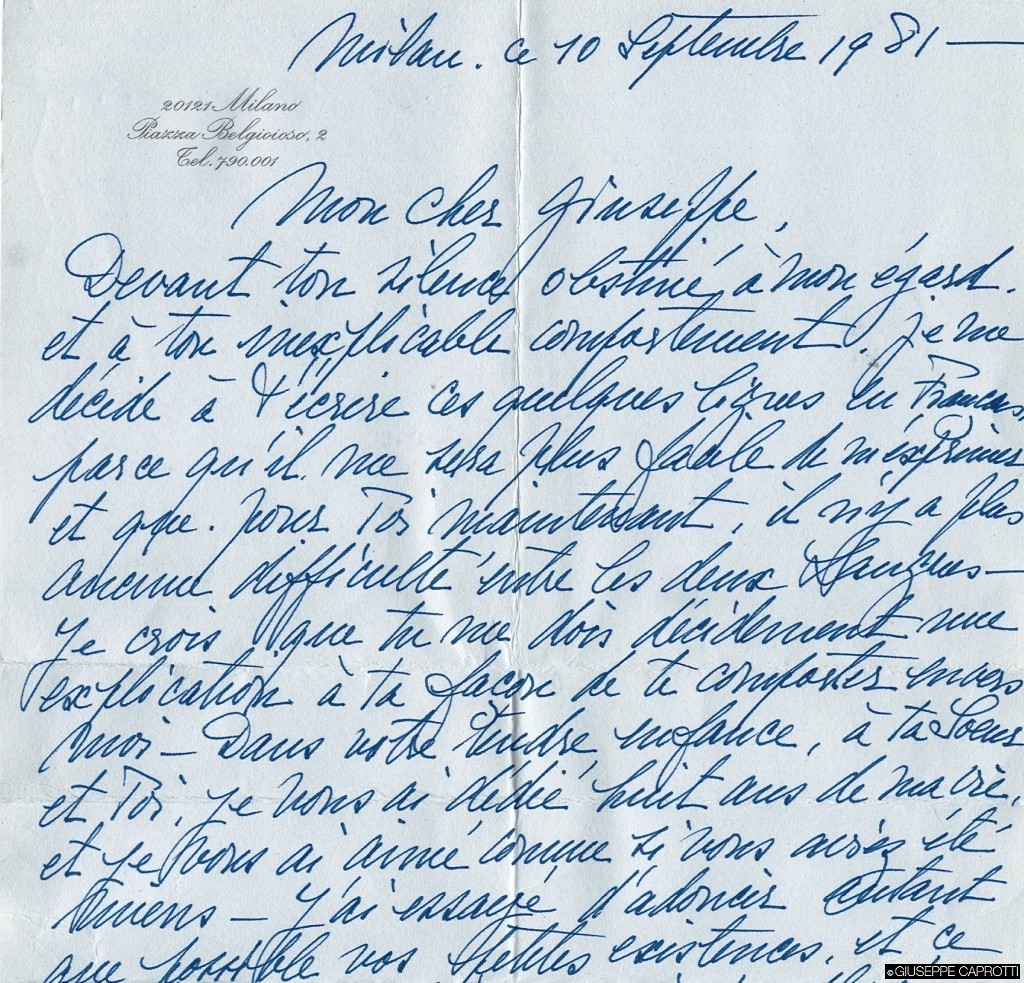 Milan. ce 10 Septembre 1981 —
20121 Milano
Piazza Belgioioso, 2
Tel. 790.001
Mon cher Giuseppe,
Devant ton silence obstiné, à mon égard.
et à ton inexplicable comportement, je me
décide à t'écrire ces quelques lignes en Francais,
parce qu'il me sera plus facile de m'exprimer
et que. pour Toi maintenant, il n'y a plus
aucune difficulté entre les deux Langues —
Je crois que tu me dois décidement une
explication à ta façon de te comporter envers
moi — Dans votre tendre, enfance, à ta Soeur
et Toi, je vous ai dédié huit ans de ma vie,
et je vous ai aimé comme si vous aviès été
miens — J'ai essayé d'adoucir autant
que possible vos petites existences, et ce
©GIUSEPPE CAPROTTI